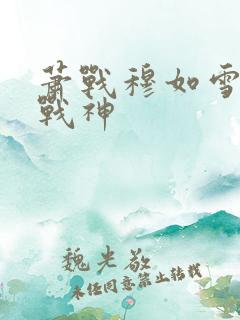 萧战穆如雪
战神
魏光敬
未经同意禁止转载